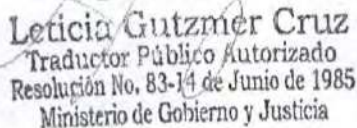 Leticia Gutzmer Cruz
Traductor Público Autorizado
Resolución No. 83-14 de Junio de 1985
Ministerio de Gobierno y Justicia